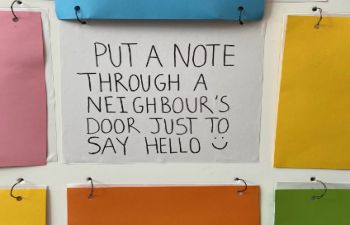 PUT A NOTE
THROUGH A
NEIGHBOUR'S
DOOR JUST TO
SAY HELLO